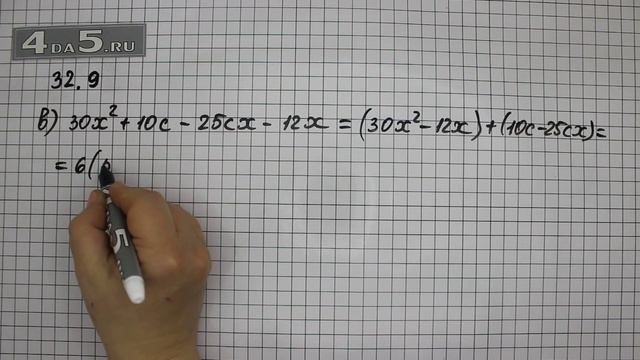 4DA5.RU
32.9
в) 30x² + 10c - 25cx - 12x = (30x² - 12x) + (10c - 25cx) =
= 6(